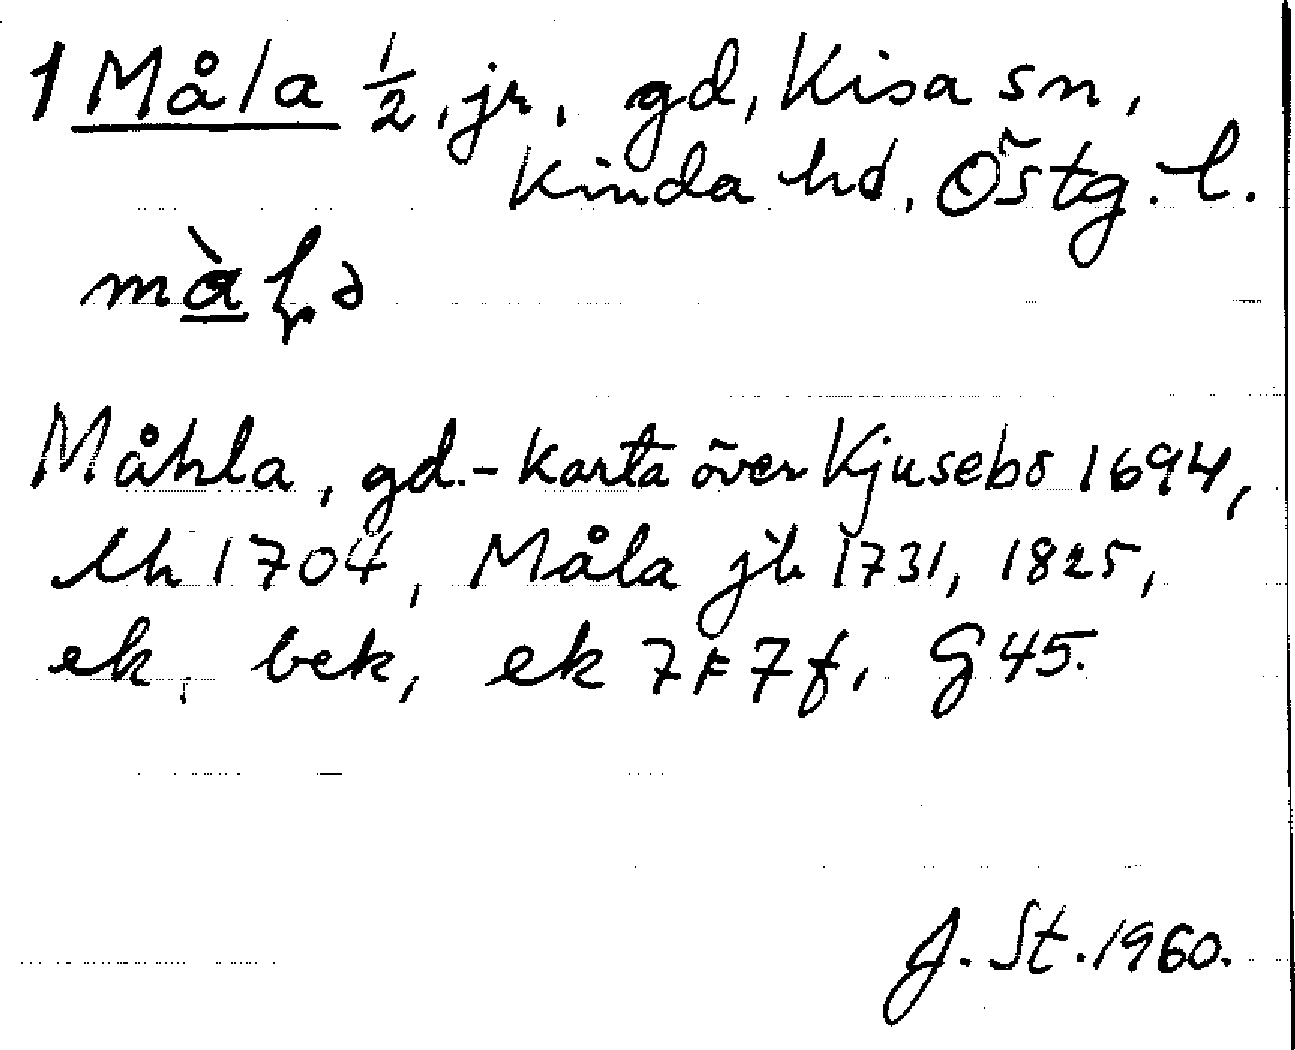 1 Måla ½, jr, gd, Kisa sn,
Kinda hd, Östg. l.
Måhla, gd. - Karta över Kjusebo 1694,
lh 1704, Måla jb 1731, 1825,
ek, bek, ek 7F7f, G 45.
J. St. 1960.